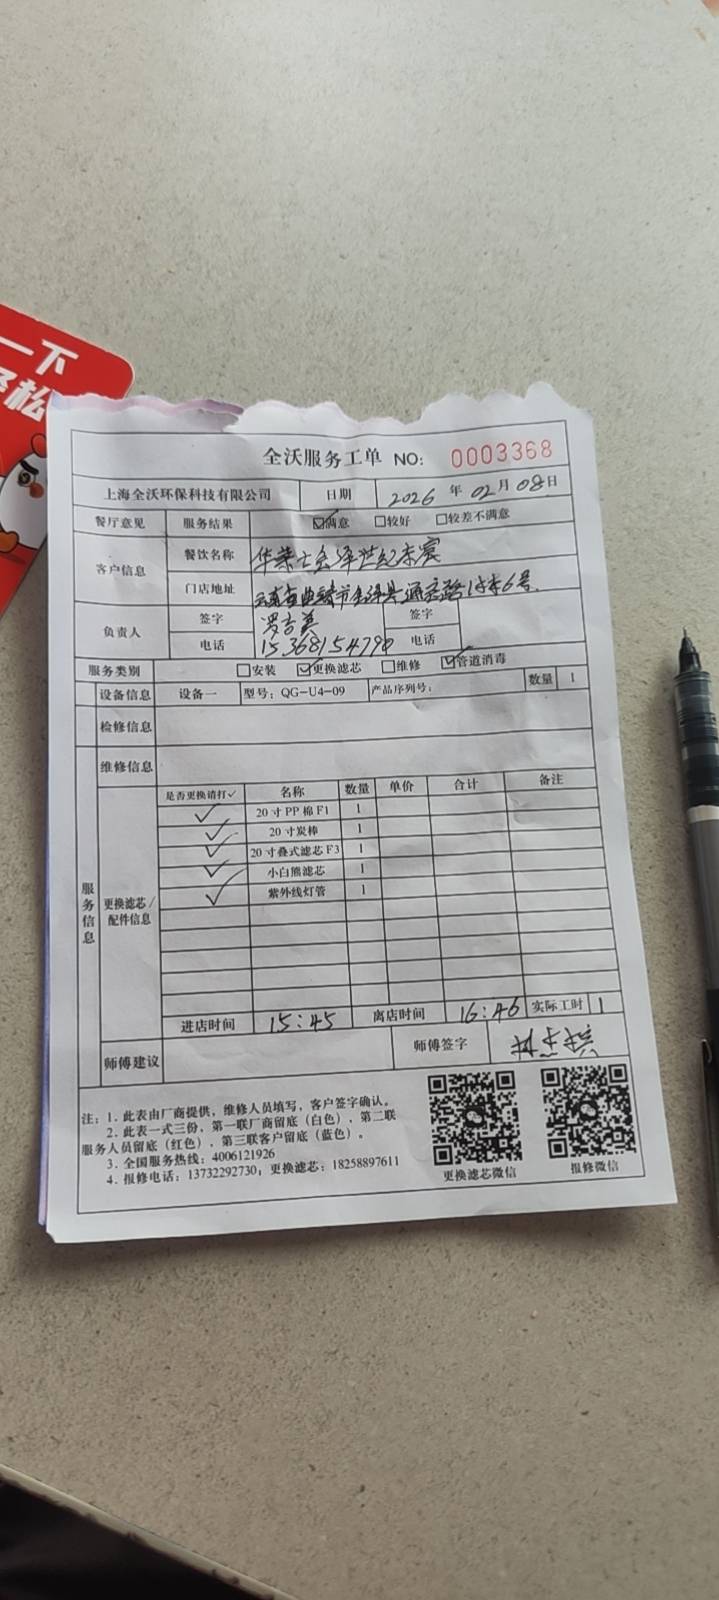 一下
轻松
全沃服务工单 NO: 0003368
上海全沃环保科技有限公司 日期 2026 年 02 月 08 日
餐厅意见 服务结果 ☑满意 □较好 □较差不满意
客户信息 餐饮名称 华莱士会泽世纪东宸
门店地址 云南省曲靖市会泽县通宝路 6号.
负责人 签字 罗吉美 签字
电话 15368154790 电话
服务类别 □安装 ☑更换滤芯 □维修 ☑管道消毒
设备信息 设备一 型号: QG-U4-09 产品序列号: 数量 1
检修信息
维修信息
服务信息
更换滤芯/配件信息
是否更换请打✓ 名称 数量 单价 合计 备注
✓ 20 寸 PP 棉 F1 1
✓ 20 寸炭棒 1
✓ 20 寸叠式滤芯 F3 1
✓ 小白熊滤芯 1
✓ 紫外线灯管 1
进店时间 15:45 离店时间 16:46 实际工时 1
师傅建议 师傅签字
注: 1. 此表由厂商提供，维修人员填写，客户签字确认。
2. 此表一式三份，第一联厂商留底（白色），第二联
服务人员留底（红色），第三联客户留底（蓝色）。
3. 全国服务热线: 4006121926
4. 报修电话: 13732292730; 更换滤芯: 18258897611
更换滤芯微信 报修微信